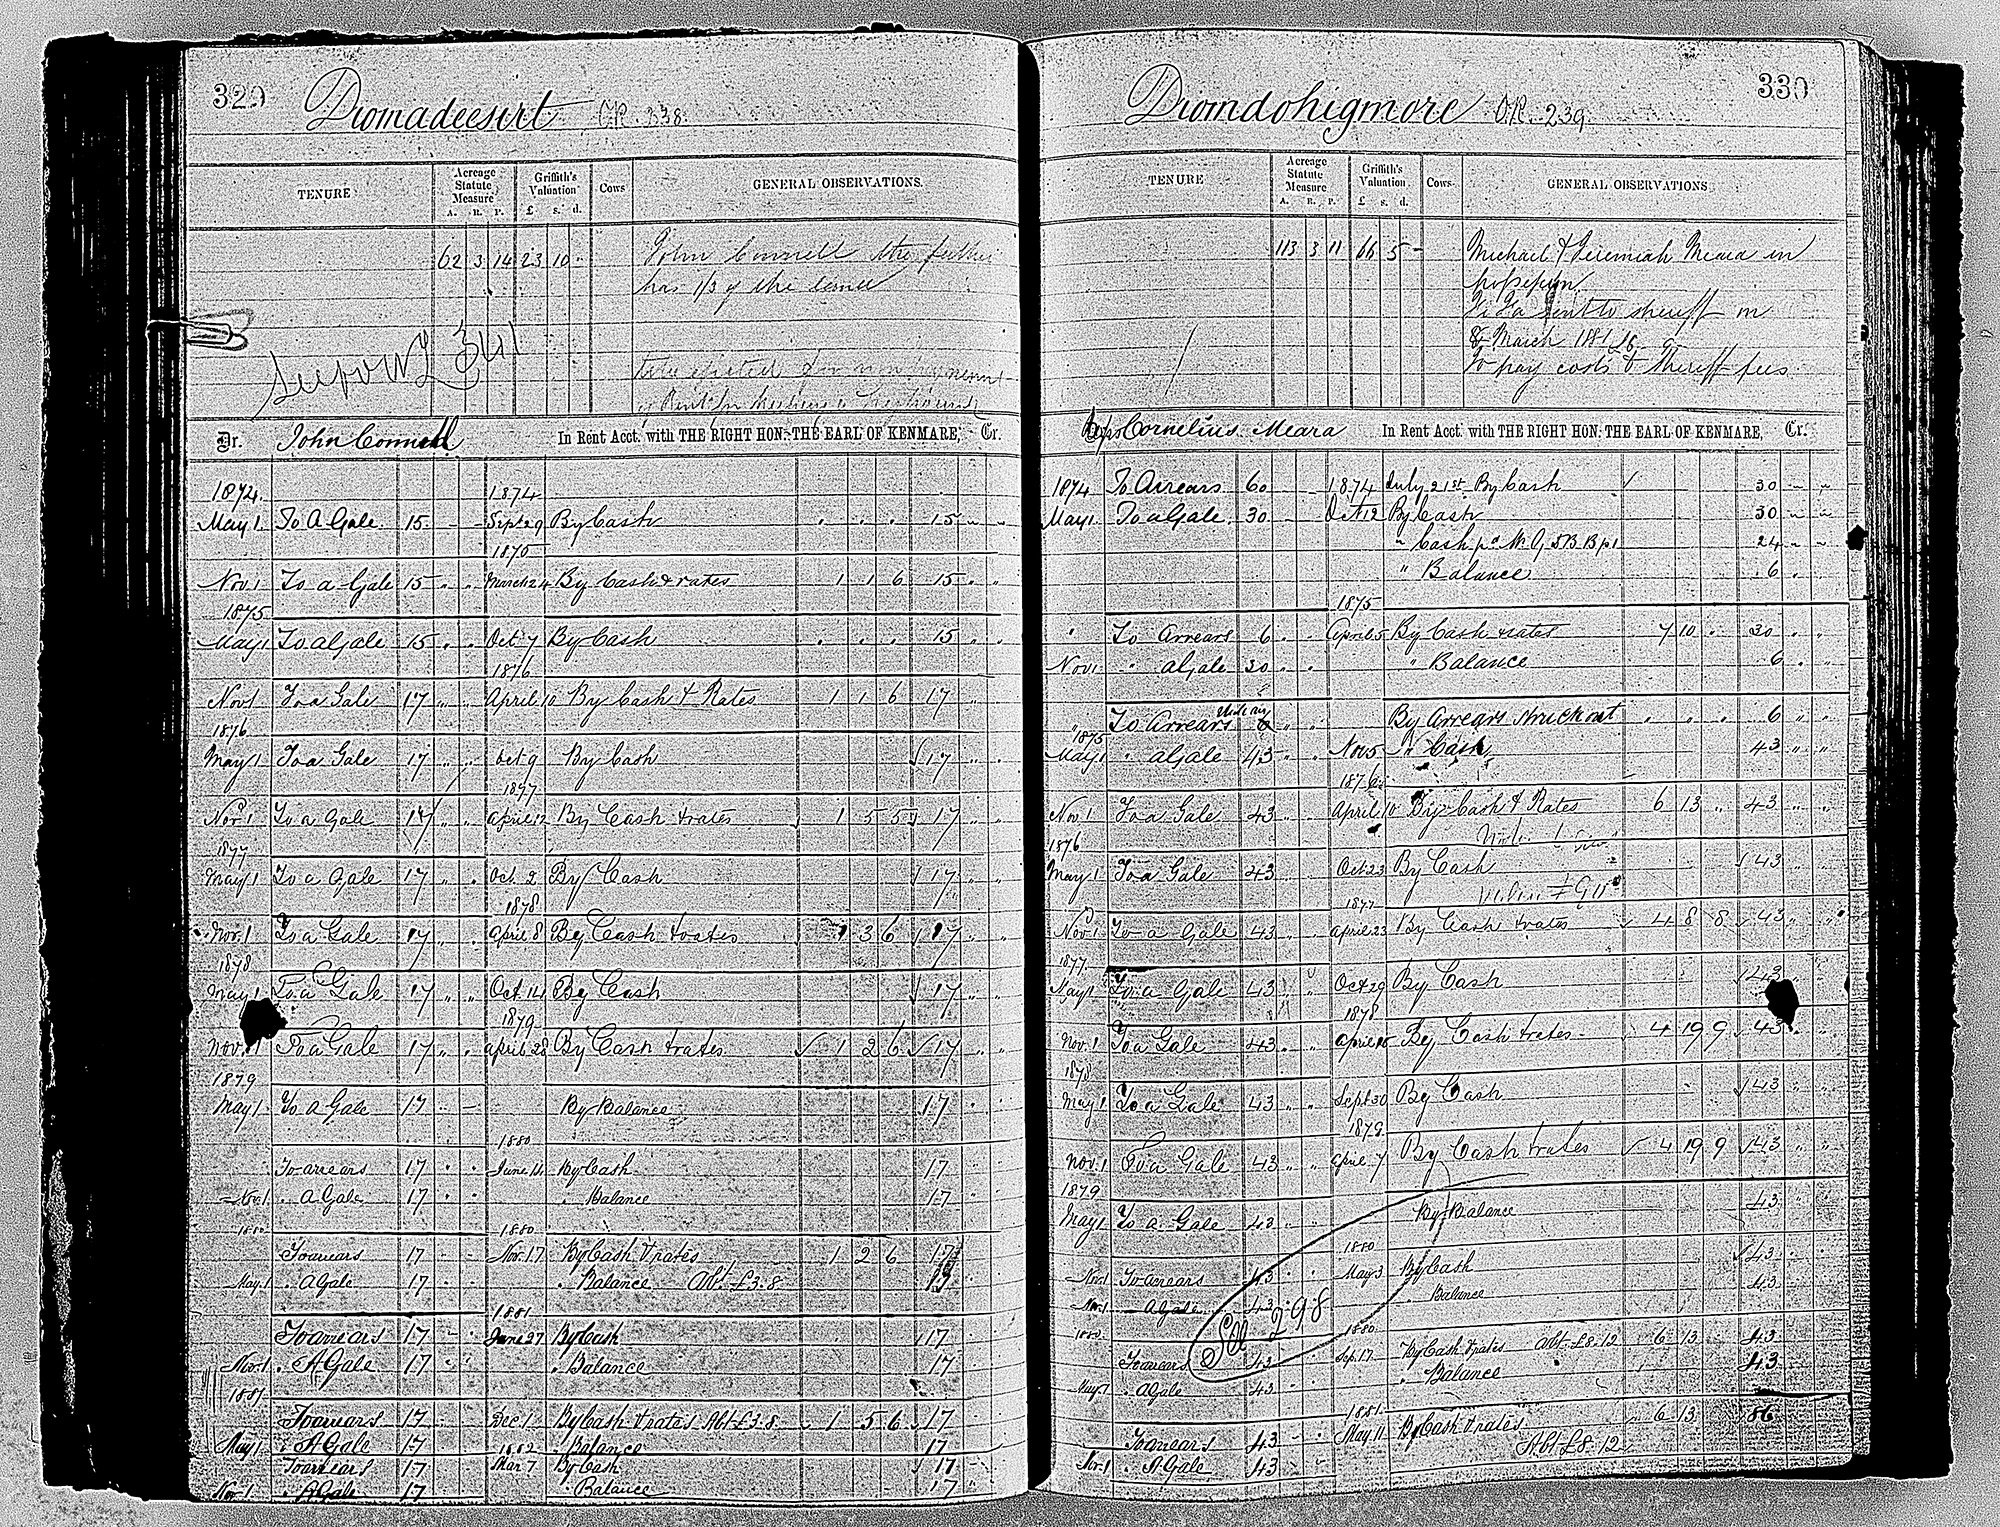 329 Dromadeesirt O.R. 338.
TENURE Acreage Statute Measure A. R. P. Griffith's Valuation £ s. d. Cows GENERAL OBSERVATIONS.
62 3 14 23 10 " John Connell the father
has 1/3 of the land
341
Dr. John Connell In Rent Acct. with THE RIGHT HON: THE EARL OF KENMARE, Cr.
1874 1874
May 1 To A Gale 15 - - Sept 29 By Cash 15 " "
1875
Nov 1 To a Gale 15 " " March 24 By Cash & rates 1 1 6 15 " "
1875
May 1 To a Gale 15 " " Oct 7 By Cash 15 " "
1876
Nov 1 To a Gale 17 " " April 10 By Cash & Rates 1 1 6 17 " "
1876
May 1 To a Gale 17 " " Oct 9 By Cash √17 " "
1877
Nov 1 To a Gale 17 " " April 12 By Cash & rates 1 5 5 √17 " "
1877
May 1 To a Gale 17 " " Oct. 2 By Cash √17 " "
1878
Nov. 1 To a Gale 17 " " April 8 By Cash & rates 1 3 6 √17 " "
1878
May 1 To a Gale 17 " " Oct. 14 By Cash √17 " "
1879
Nov. 1 To a Gale 17 " " April 28 By Cash & rates √ 1 2 6 √17 " "
1879
May 1 To A Gale 17 " - By Balance 17 "
1880
To arrears 17 " " June 14 By Cash 17 "
Nov. 1 " A Gale 17 " " " Balance 17 "
1880 1880
To arrears 17 - - Nov. 17 By Cash & rates 1 2 6 17
May 1 " A Gale 17 " " " Balance Abt. £3.8. 17
1881
To arrears 17 - " June 27 By Cash 17
Nov. 1 " A Gale 17 " " " Balance 17
1881
To arrears 17 Dec. 1 By Cash & rates Abt. £3.8. 1 5 6 17
May 1 " A Gale 17 1882 " Balance 17
To arrears 17 Mar 7 By Cash √17
Nov. 1 " A Gale 17 " Balance 17
330 Dromdohigmore O.R. 239
TENURE Acreage Statute Measure A. R. P. Griffith's Valuation. £ s. d. Cows. GENERAL OBSERVATIONS
113 3 11 66 5 - Michael & Jeremiah Meara in
possession
Fi Fa sent to sheriff on
8 March 1881
To pay costs & Sheriff fees
Reps Cornelius Meara In Rent Acct. with THE RIGHT HON: THE EARL OF KENMARE, Cr.
1874 To Arrears 60 1874 July 21st By Cash √ 30 " "
May 1 To a Gale 30 Oct 12 By Cash 30 " "
" Cash 24 " "
" Balance 6 "
1875
" To Arrears 6 " " April 5 By Cash & rates 7 10 " 30 " "
Nov 1 " a Gale 30 " " " Balance 6 " "
" To Arrears 6 " " By Arrears struck out " " " 6 " "
1875
May 1 " a Gale 43 " " Nov 5 " Cash 43 " "
1876
Nov 1 To a Gale 43 " " April 10 By Cash & Rates 6 13 " 43 " "
1876
May 1 To a Gale 43 " " Oct 23 By Cash √43 " "
1877
Nov. 1 To a Gale 43 " " April 23 By Cash & rates √ 4 8 8 √43 " "
1877
May 1 To a Gale 43 " " Oct 29 By Cash √43 " "
1878
Nov. 1 To a Gale 43 " " April 15 By Cash & rates 4 19 9 √43 "
1878
May 1 To a Gale 43 " " Sept 30 By Cash √43 " "
1879
Nov. 1 To a Gale 43 " " April 7 By Cash & rates √ 4 19 9 √43 " "
1879
May 1 To a Gale 43 " " By Balance 43 " "
1880
To arrears 43 " " May 3 By Cash √43 " "
Nov. 1 " A Gale 43 " " " Balance 43
298
1880 1880
To arrears 43 Sep. 17 By Cash & rates Abt. £8.12 6 13 43
May 1 " A Gale 43 " Balance 43
1881
To arrears 43 May 11 By Cash & rates 6 13 86
Nov 1 " A Gale 43 Abt. £8.12